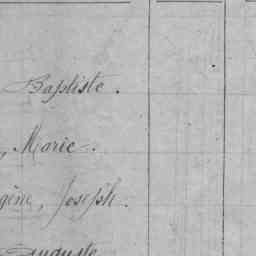 Baptiste.
, Marie.
gène, Joseph.
Auguste